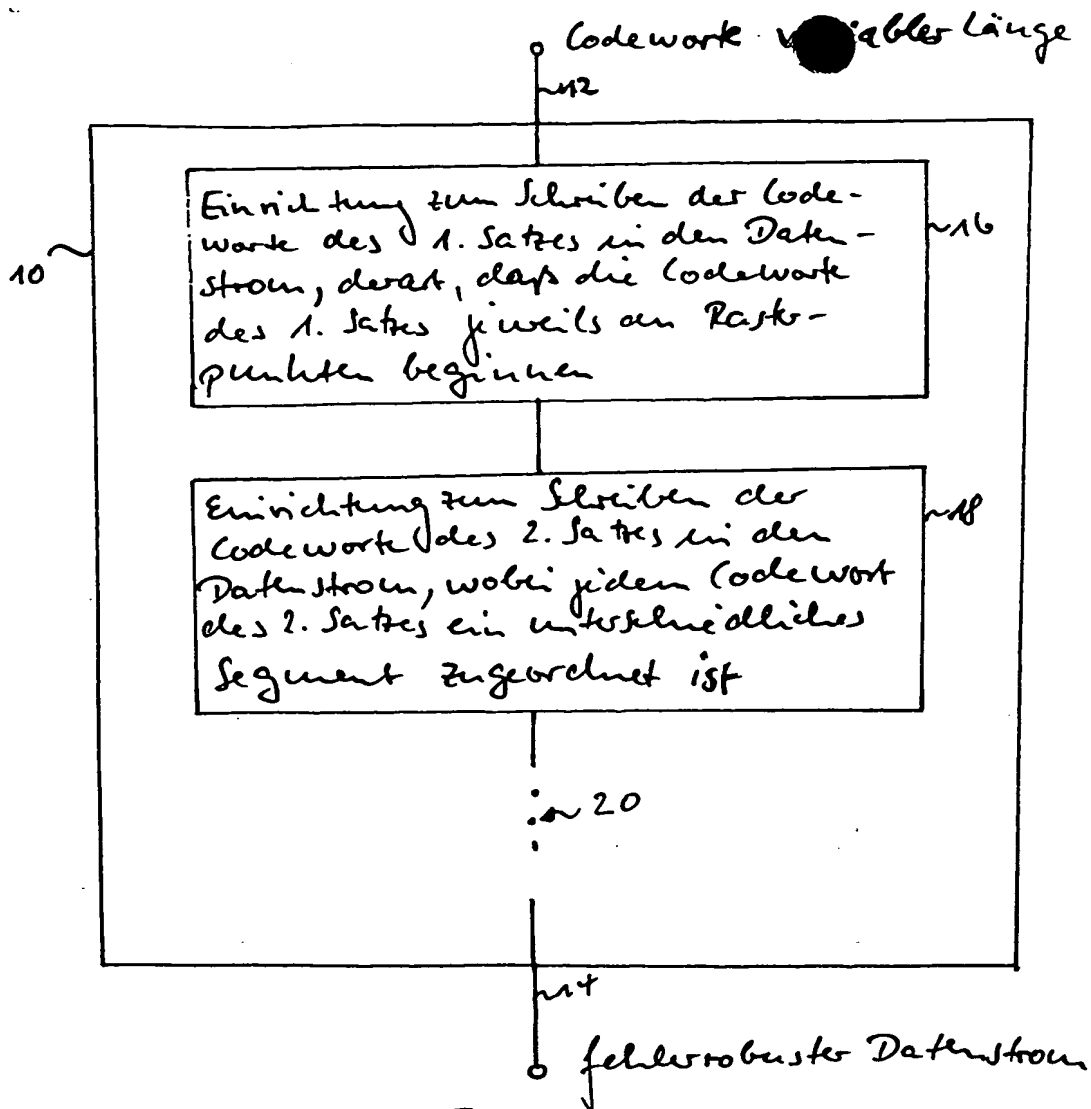 Codeworte variabler Länge
12
Einrichtung zum Schreiben der Code-
worte des 1. Satzes in den Daten-
strom, derart, daß die Codeworte
des 1. Satzes jeweils an Raster-
punkten beginnen
16
10
Einrichtung zum Schreiben der
Codeworte des 2. Satzes in den
Datenstrom, wobei jedem Codewort
des 2. Satzes ein unterschiedliches
Segment zugeordnet ist
18
20
14
fehlerrobuster Datenstrom